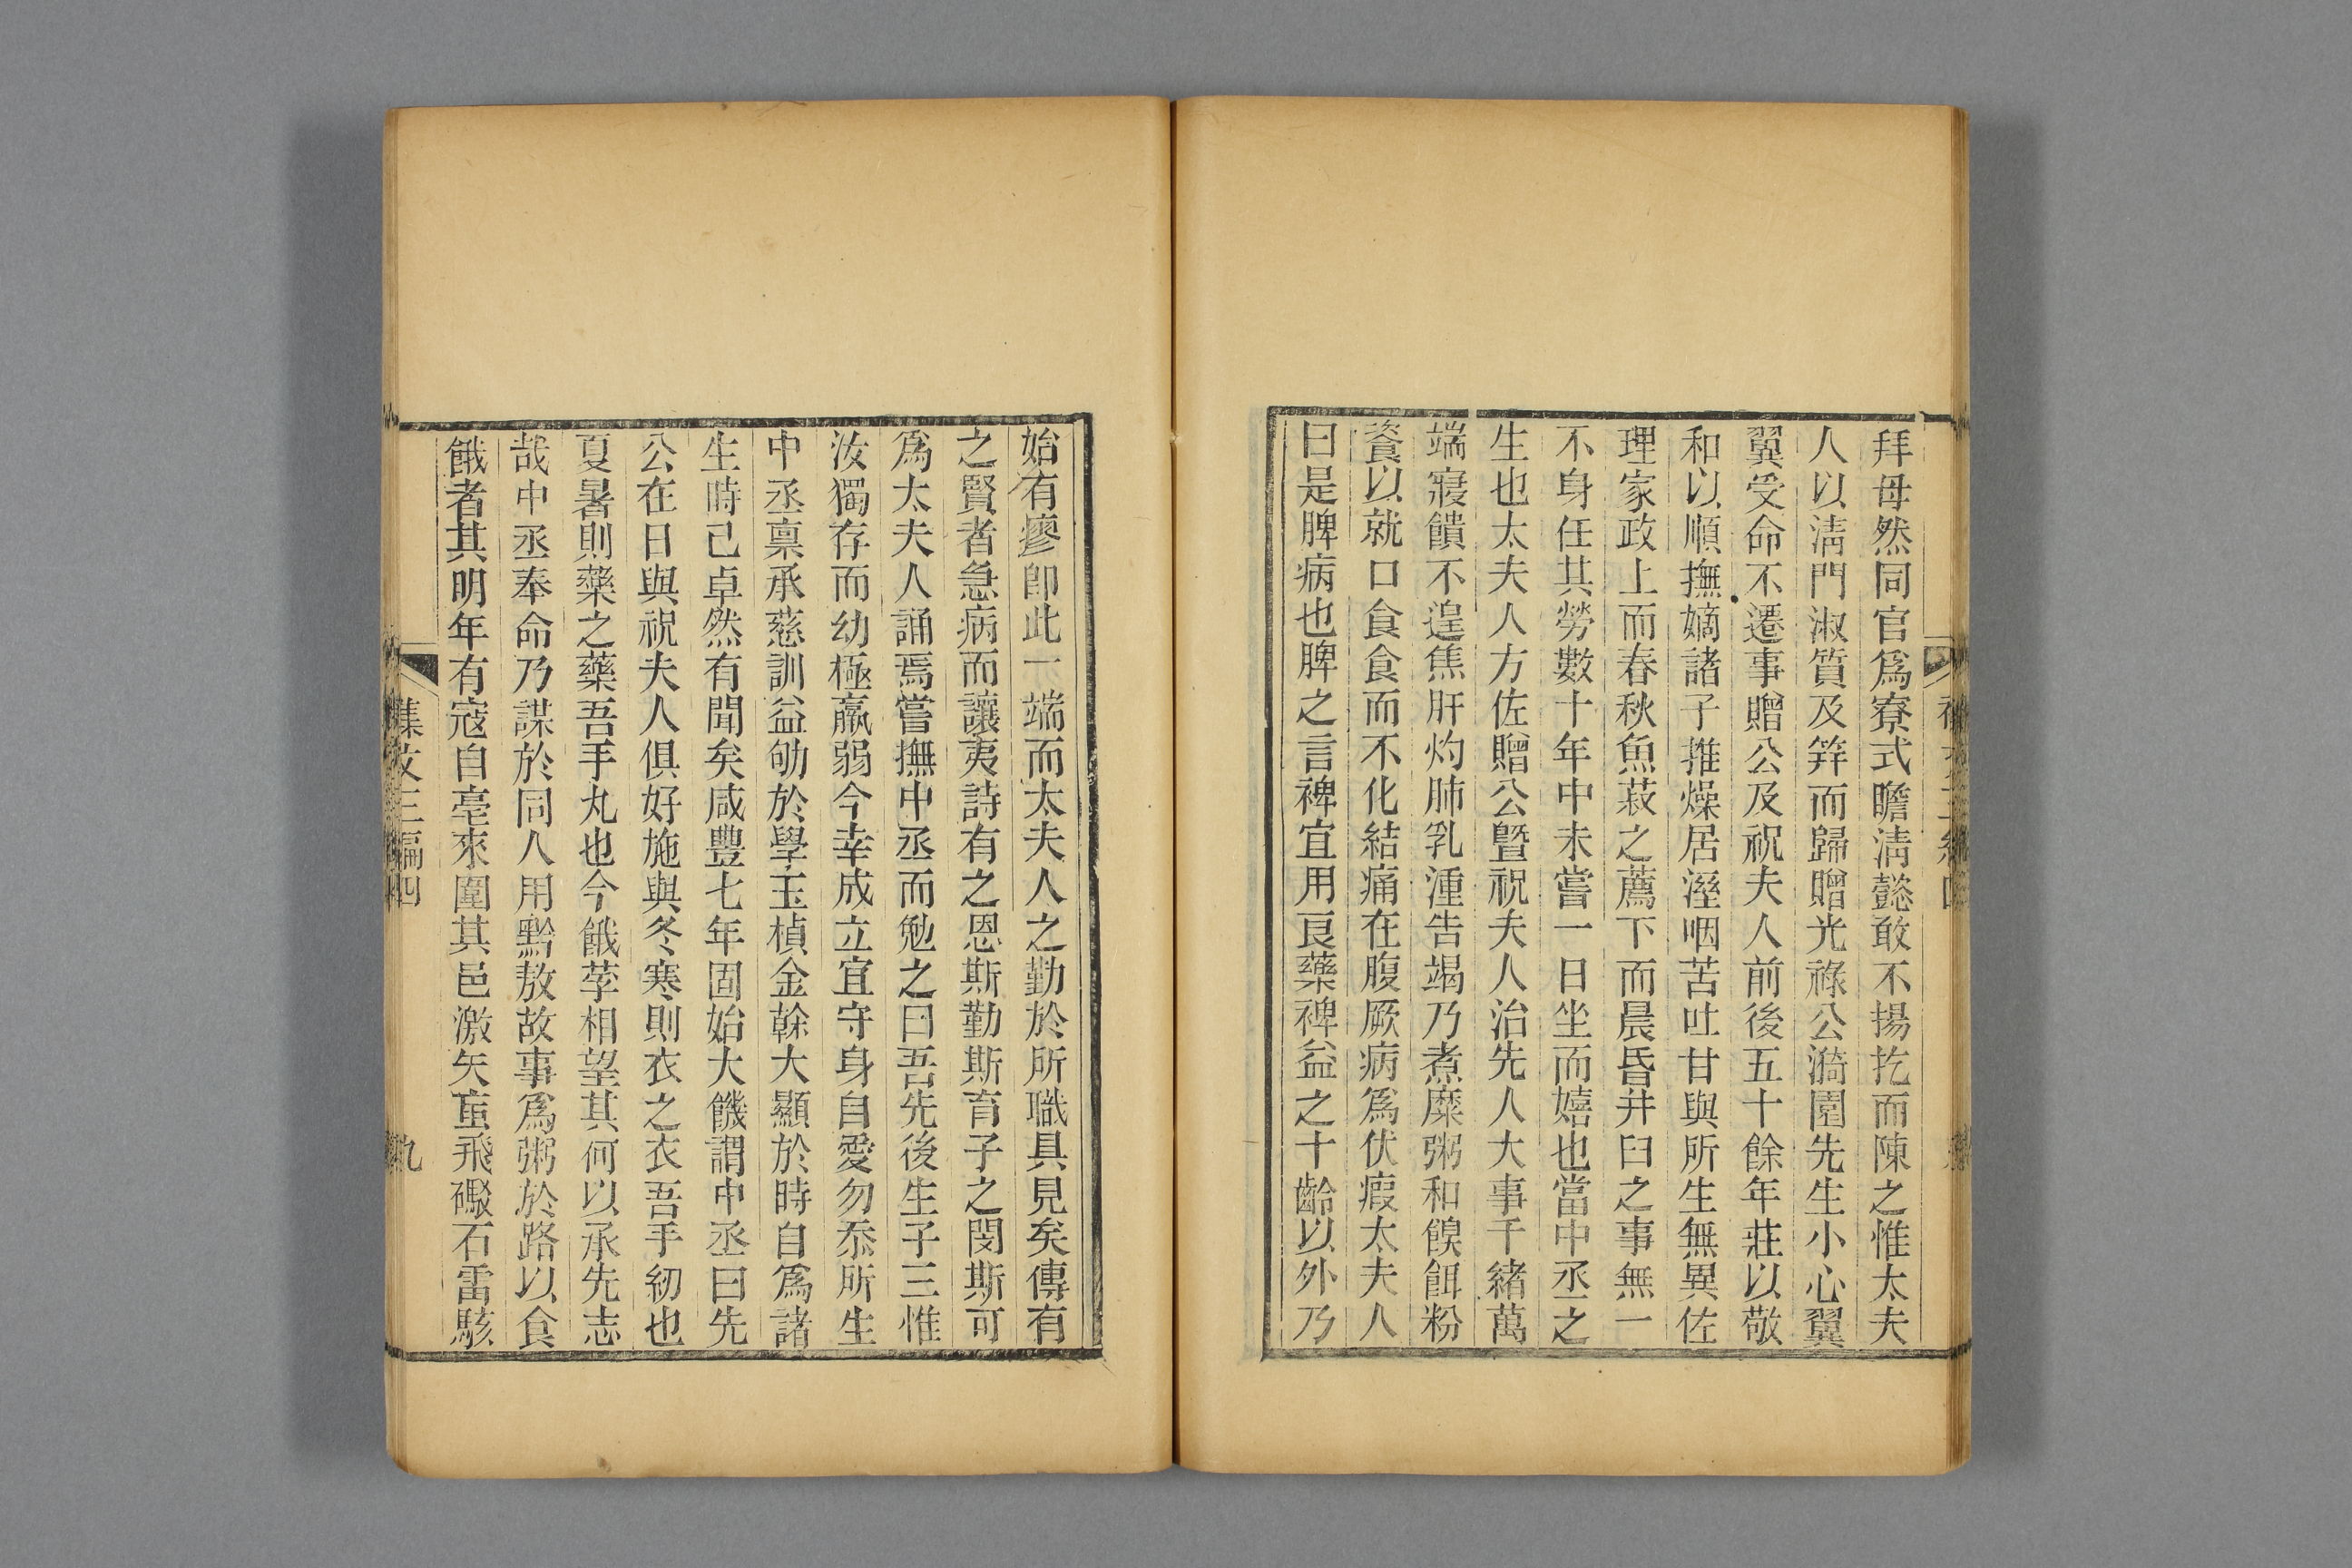 拜母然同官爲寮式瞻淸懿敢不揚扢而陳之惟太夫
人以淸門淑質及筓而歸贈光祿公漪園先生小心翼
翼受命不遷事贈公及祝夫人前後五十餘年莊以敬
和以順撫嫡諸子推燥居溼咽苦吐甘與所生無異佐
理家政上而春秋魚菽之薦下而晨昏井臼之事無一
不身任其勞數十年中未嘗一日坐而嬉也當中丞之
生也太夫人方佐贈公曁祝夫人治先人大事千緒萬
端寢饋不遑焦肝灼肺乳湩告竭乃煮糜粥和餱餌粉
餈以就口食食而不化結痛在腹厥病爲伏瘕太夫人
曰是脾病也脾之言裨宜用良藥裨益之十齡以外乃
始有瘳卽此一端而太夫人之勤於所職具見矣傳有
之賢者急病而讓夷詩有之恩斯勤斯育子之閔斯可
爲太夫人誦焉嘗撫中丞而勉之曰吾先後生子三惟
汝獨存而幼極羸弱今幸成立宜守身自愛勿忝所生
中丞稟承慈訓益劬於學玉楨金榦大顯於時自爲諸
生時己卓然有聞矣咸豐七年固始大饑謂中丞曰先
公在日與祝夫人俱好施與冬寒則衣之衣吾手紉也
夏暑則藥之藥吾手丸也今餓莩相望其何以承先志
哉中丞奉命乃謀於同人用黔敖故事爲粥於路以食
餓者其明年有寇自亳來圍其邑激矢䖟飛礮石雷駭
集文三編四
九